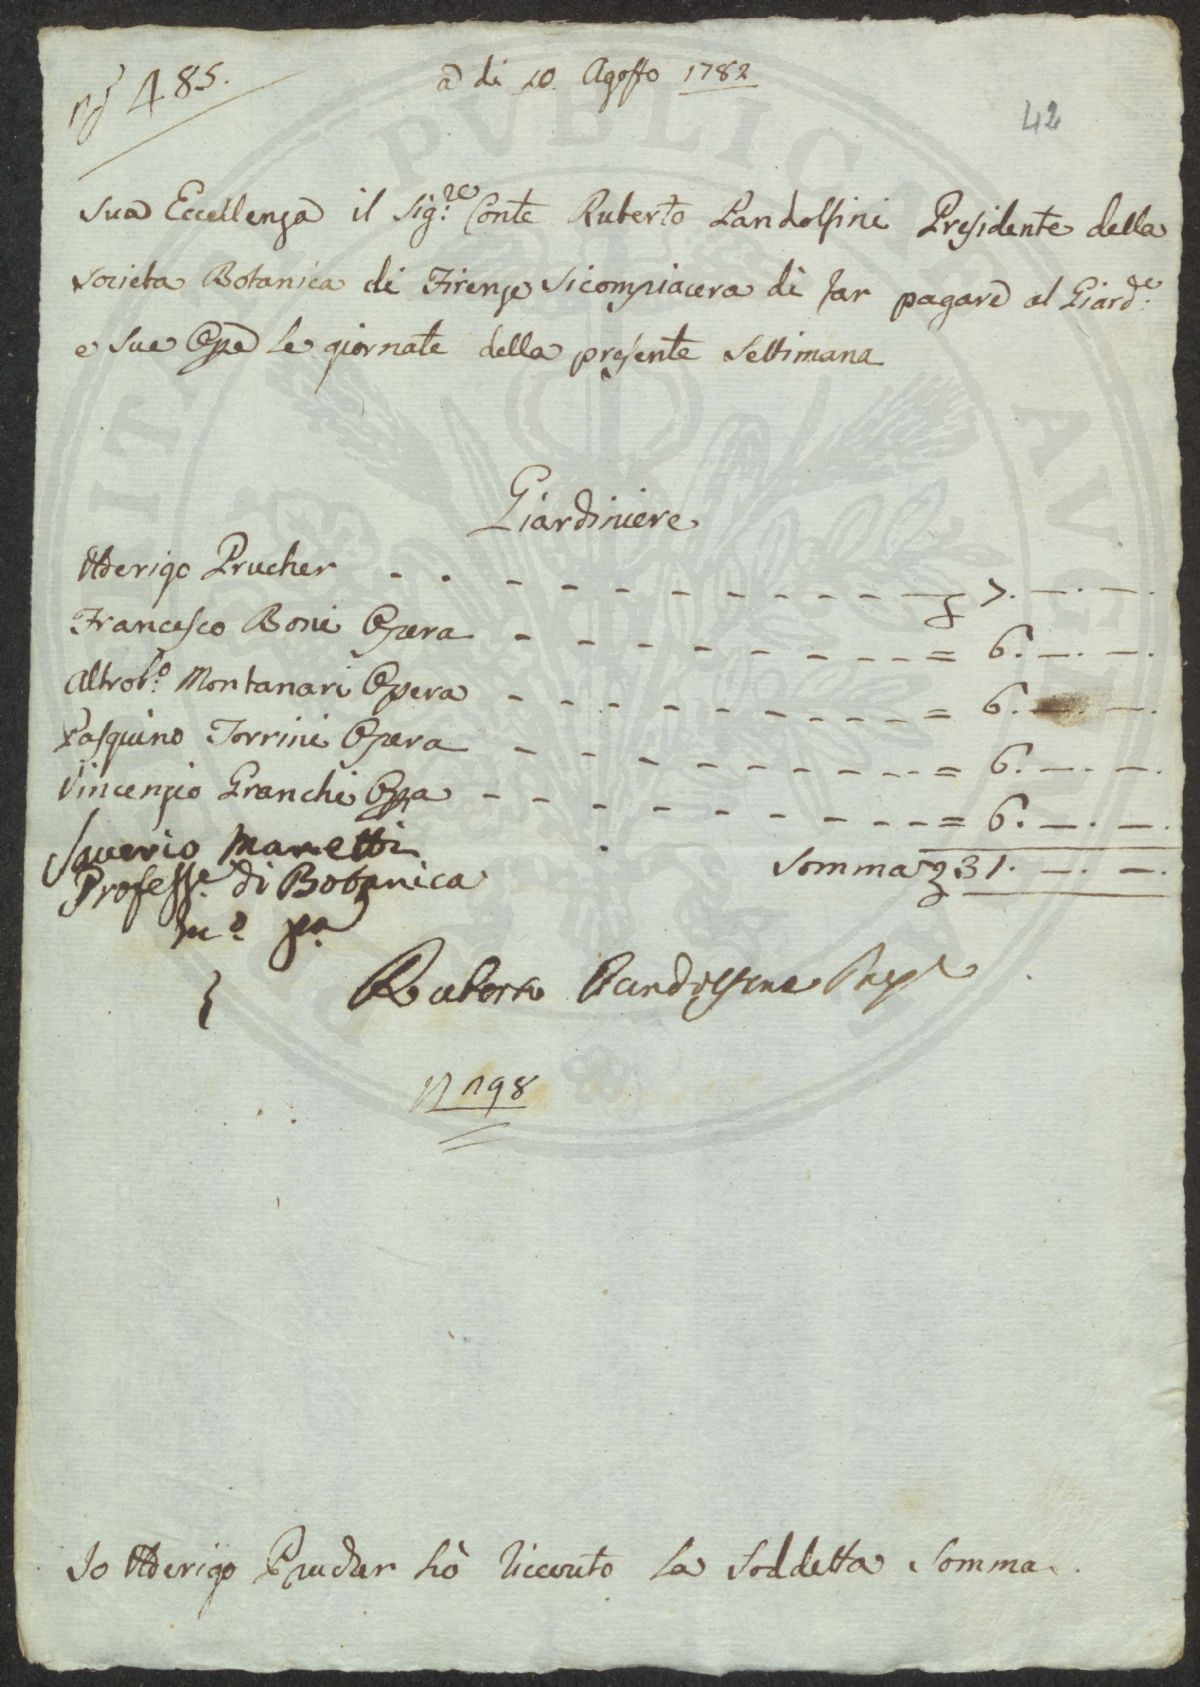 N.º 485.
a di 10. Agosto 1782
42
Sua Eccellenza il Sig.re Conte Ruberto Pandolfini Presidente della
Societa Botanica di Firenze si compiacera di far pagare al Giard.e
e sue Ope le giornate della presente Settimana
Giardiniere
Aderigo Prucher - - - - - - - - - - - £ 7. —. —.
Francesco Boni Opera - - - - - - - - = 6. —. —.
Altrob.o Montanari Opera - - - - - - - = 6. —. —.
Pasquino Torrini Opera - - - - - - - - = 6. —. —.
Vincenzio Granchi Opa - - - - - - - - = 6. —. —.
Somma £ 31. —. —.
Saverio Manetti
Profess.e di Botanica
m.o p.a
Ruberto Pandolfini Pres.e
N 198
Io Aderigo Prucher hò riceuto la Soddetta Somma
PVBLICAE